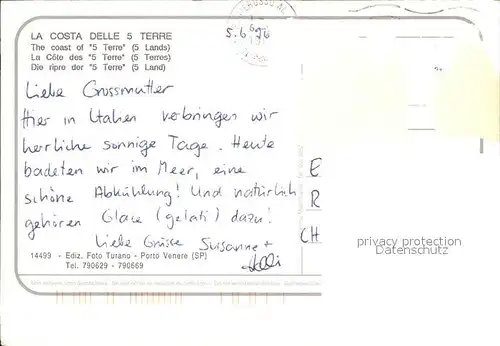 LA COSTA DELLE 5 TERRE
5.6.96
The coast of "5 Terre" (5 Lands)
La Côte des "5 Terre" (5 Terres)
Die ripre dor "5 Terre" (5 Land)
Liebe Grossmutter
Hier in Italien verbringen wir
herrliche sonnige Tage. Heute
badeten wir im Meer, eine
schöne Abkühlung! Und natürlich
gehören Glace (gelati) dazu!
Liebe Grüsse Susanne +
E
R
CH
privacy protection
Datenschutz
14499 - Ediz. Foto Turano - Porto Venere (SP)
Tel. 790629 - 790669